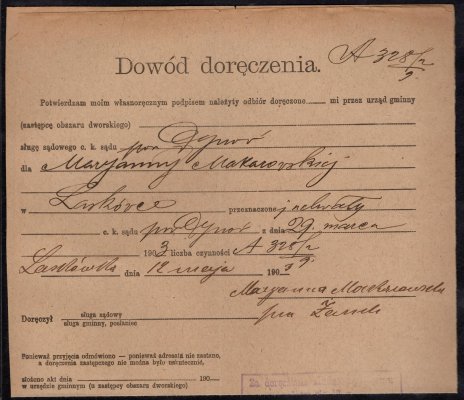 A 328/2
3
Dowód doręczenia.
Potwierdzam moim własnoręcznym podpisem należyty odbiór doręczone mi przez urząd gminny
(zastępcę obszaru dworskiego)
sługę sądowego c. k. sądu pow Dynów
dla Maryanny Makarowskiej
w przeznaczone j uchwały
c. k. sądu pow Dynów z dnia 29. marca
1903 liczba czynności A 328/2
3
Laskówka dnia 12 maja 1903
Maryanna
Doręczył sługa sądowy
sługa gminny, posłaniec
Ponieważ przyjęcia odmówiono — ponieważ adresata nie zastano,
a doręczenia zastępczego nie można było uskutecznić,
złożono akt dnia 190
w urzędzie gminnym (u zastępcy obszaru dworskiego)
Za doręczenie